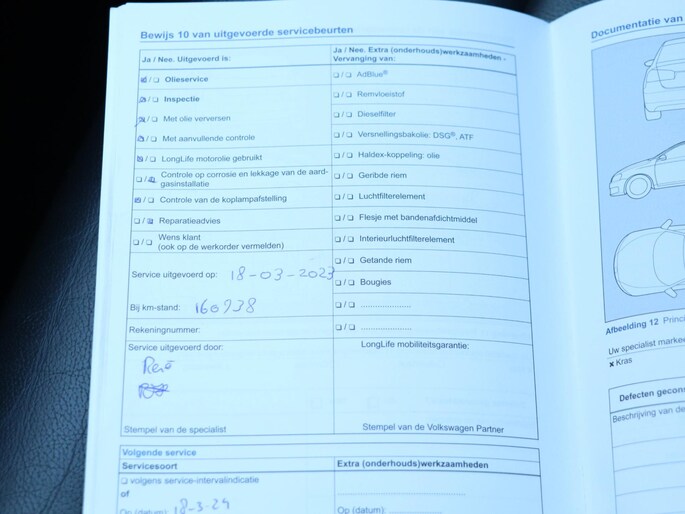 Bewijs 10 van uitgevoerde servicebeurten
Ja / Nee. Uitgevoerd is:
☑/☐ Olieservice
☑/☐ Inspectie
☑/☐ Met olie verversen
☑/☐ Met aanvullende controle
☑/☐ LongLife motorolie gebruikt
☐/☑ Controle op corrosie en lekkage van de aard-
gasinstallatie
☑/☐ Controle van de koplampafstelling
☐/☑ Reparatieadvies
☐/☐ Wens klant
(ook op de werkorder vermelden)
Service uitgevoerd op: 18-03-2023
Bij km-stand: 160938
Rekeningnummer:
Service uitgevoerd door:
Stempel van de specialist
Ja / Nee. Extra (onderhouds)werkzaamheden -
Vervanging van:
☐/☐ AdBlue®
☐/☐ Remvloeistof
☐/☐ Dieselfilter
☐/☐ Versnellingsbakolie: DSG®, ATF
☐/☐ Haldex-koppeling: olie
☐/☐ Geribde riem
☐/☐ Luchtfilterelement
☐/☐ Flesje met bandenafdichtmiddel
☐/☐ Interieurluchtfilterelement
☐/☐ Getande riem
☐/☐ Bougies
☐/☐ .....................
☐/☐ .....................
LongLife mobiliteitsgarantie:
Stempel van de Volkswagen Partner
Volgende service
Servicesoort
☐ volgens service-intervalindicatie
of
Op (datum): 18-3-24
Extra (onderhouds)werkzaamheden
Op (datum):
Documentatie van
Afbeelding 12 Princ
Uw specialist marke
x Kras
Defecten gecon
Beschrijving van de